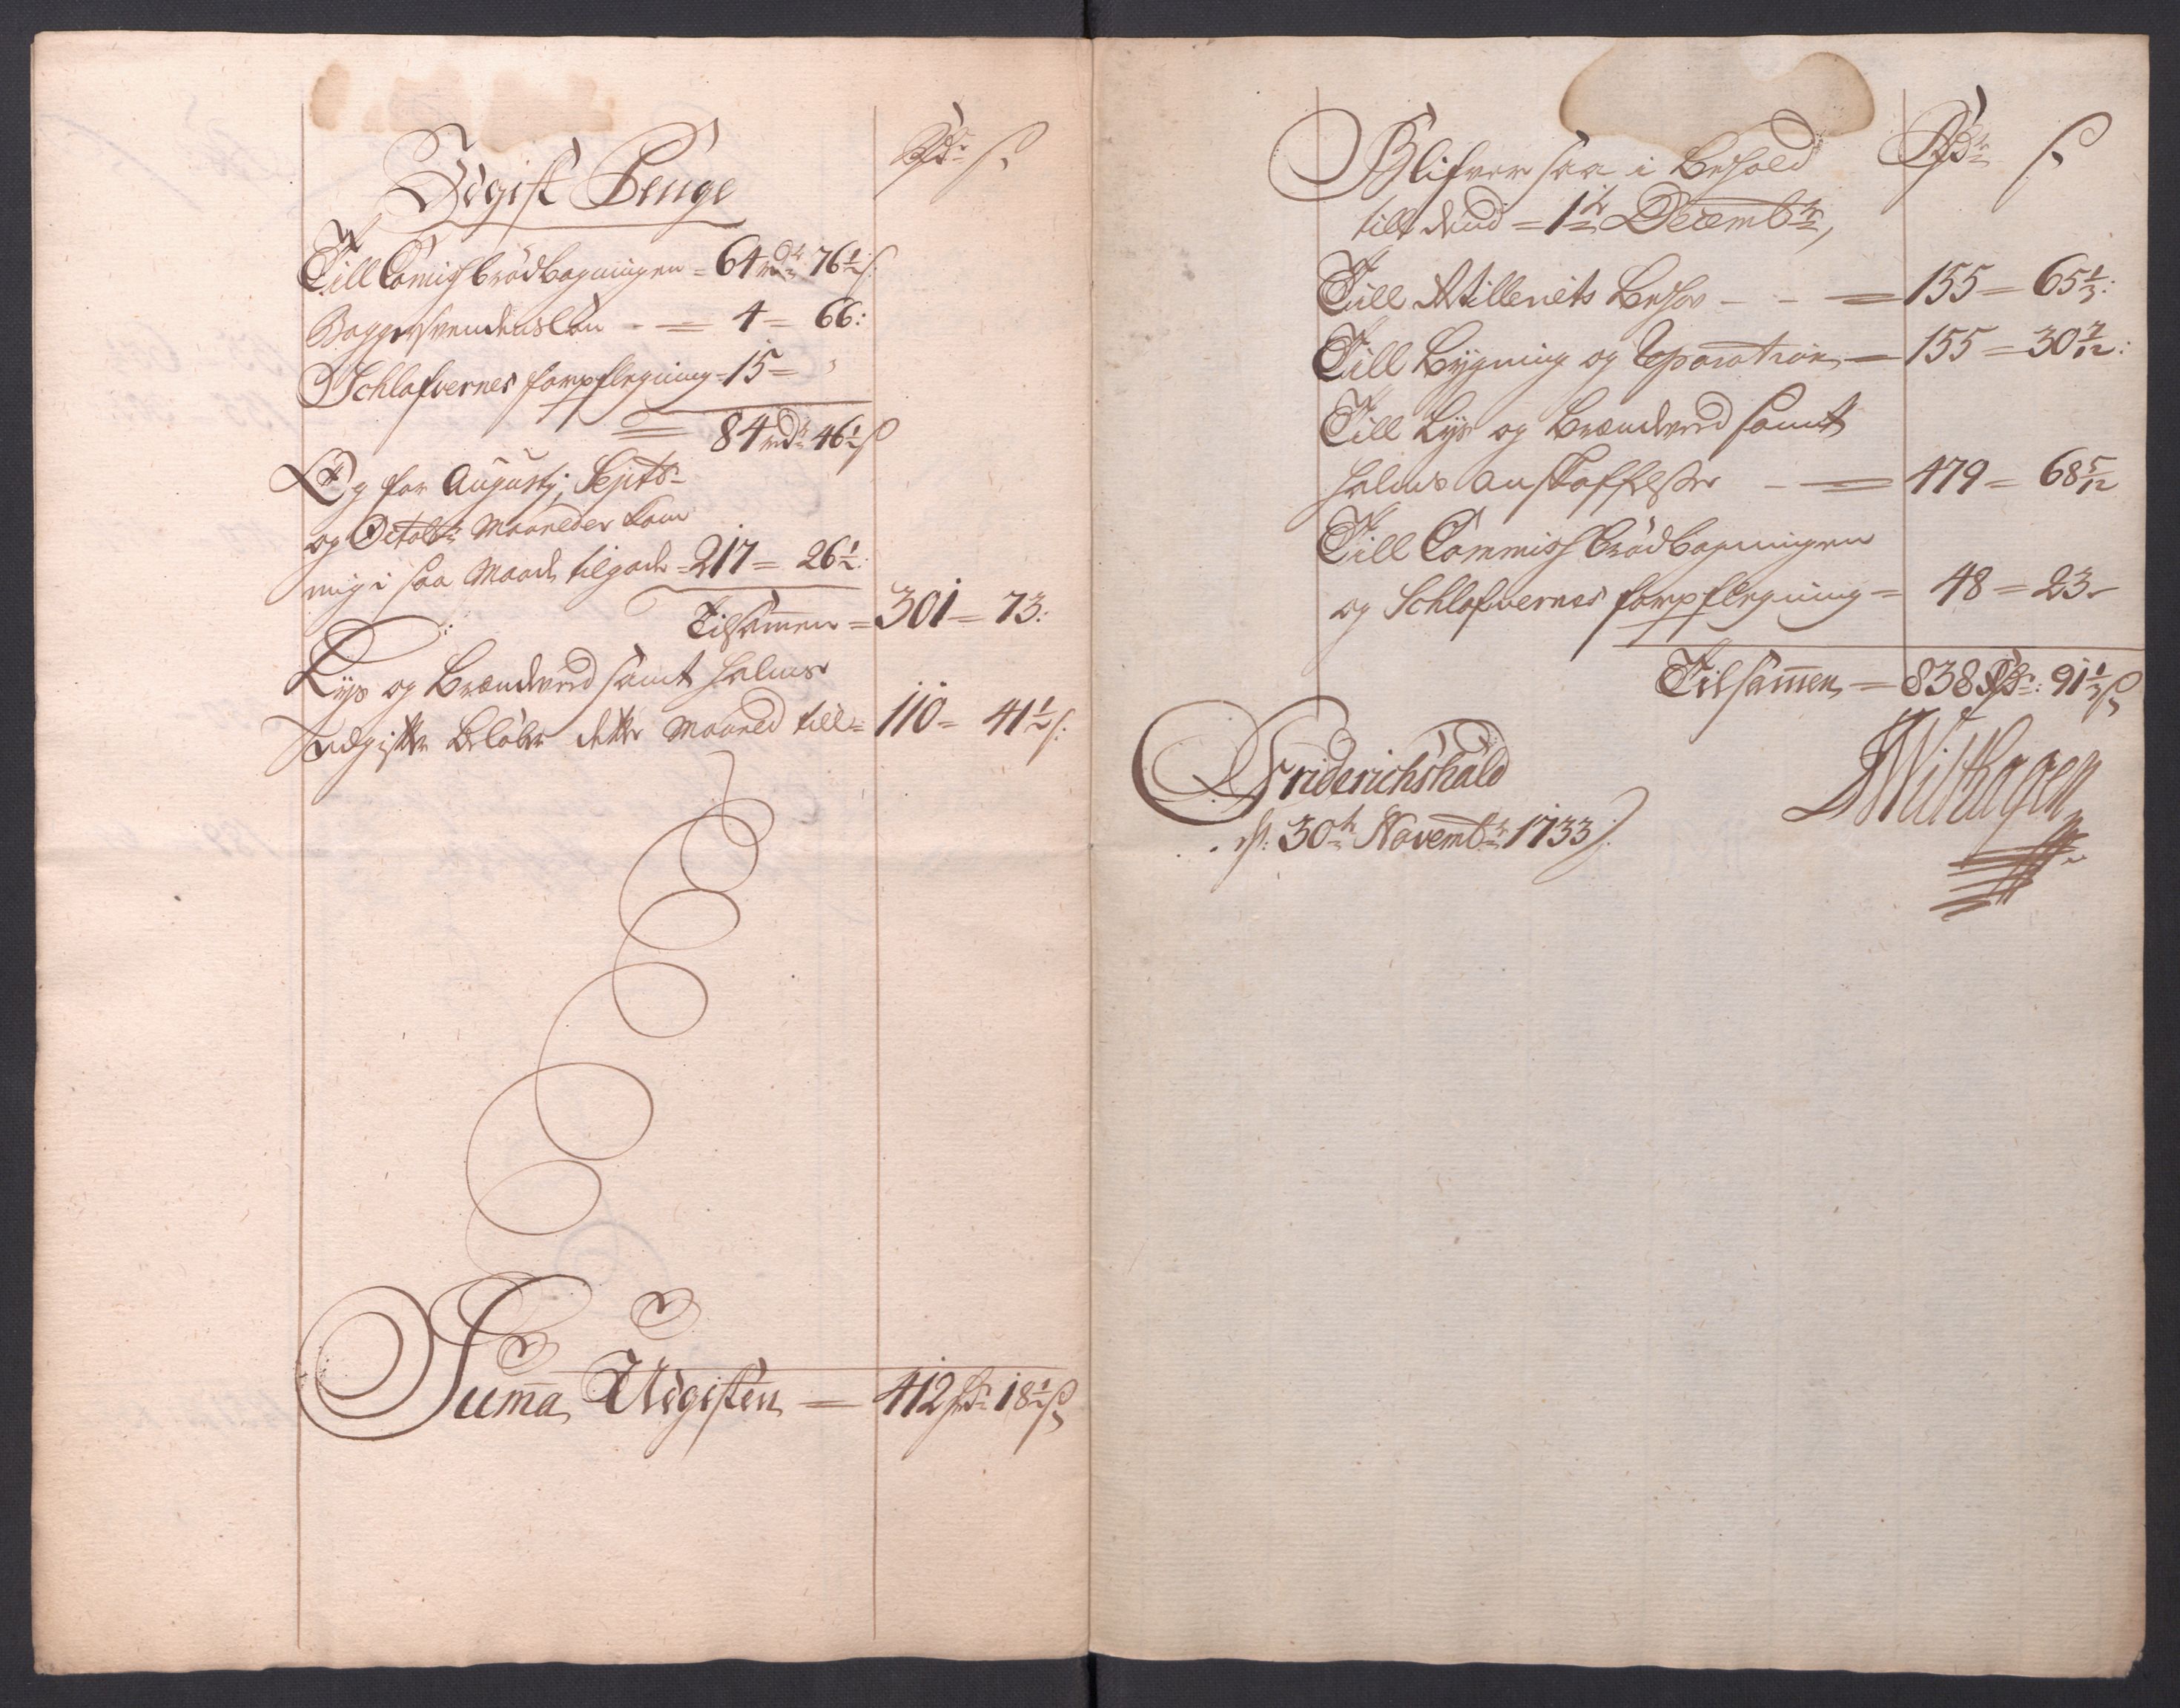 Rdr ß
Udgift Penge
Till Comisbrödbagningen = 64 rdr 76½ ß
Baggersvendens Lön - = 4 = 66:
Schlafvernes forpflegning = 15 = "
= 84 rdr 46½ ß
Og for Augustj, Septbr
og Octobr Maaneder kom
mig i saa Maade tilgode = 217 = 26½:
Tilsamen = 301 = 73:
Lys og Brændeved samt halms
udgifter beløber dette Maaned till = 110 = 41½ ß:
Suma Udgiften = 412 Rdr 18½ ß
Rdr ß
Blifver saa i Behold
till dend = 1te Decembr,
Till Artilleriets Behov - - = 155 = 65⅓:
Till Bygning og Reparation = 155 = 30 7/12:
Till Lys og Brændeved samt
halms anskaffelse - = 479 = 68 5/12
Till Commisbrödbagningen
og Schlafvernes forpflegning = 48 = 23 -
Tilsamen = 838 Rdr: 91⅓ ß
Friderichshald
d: 30te Novembr 1733